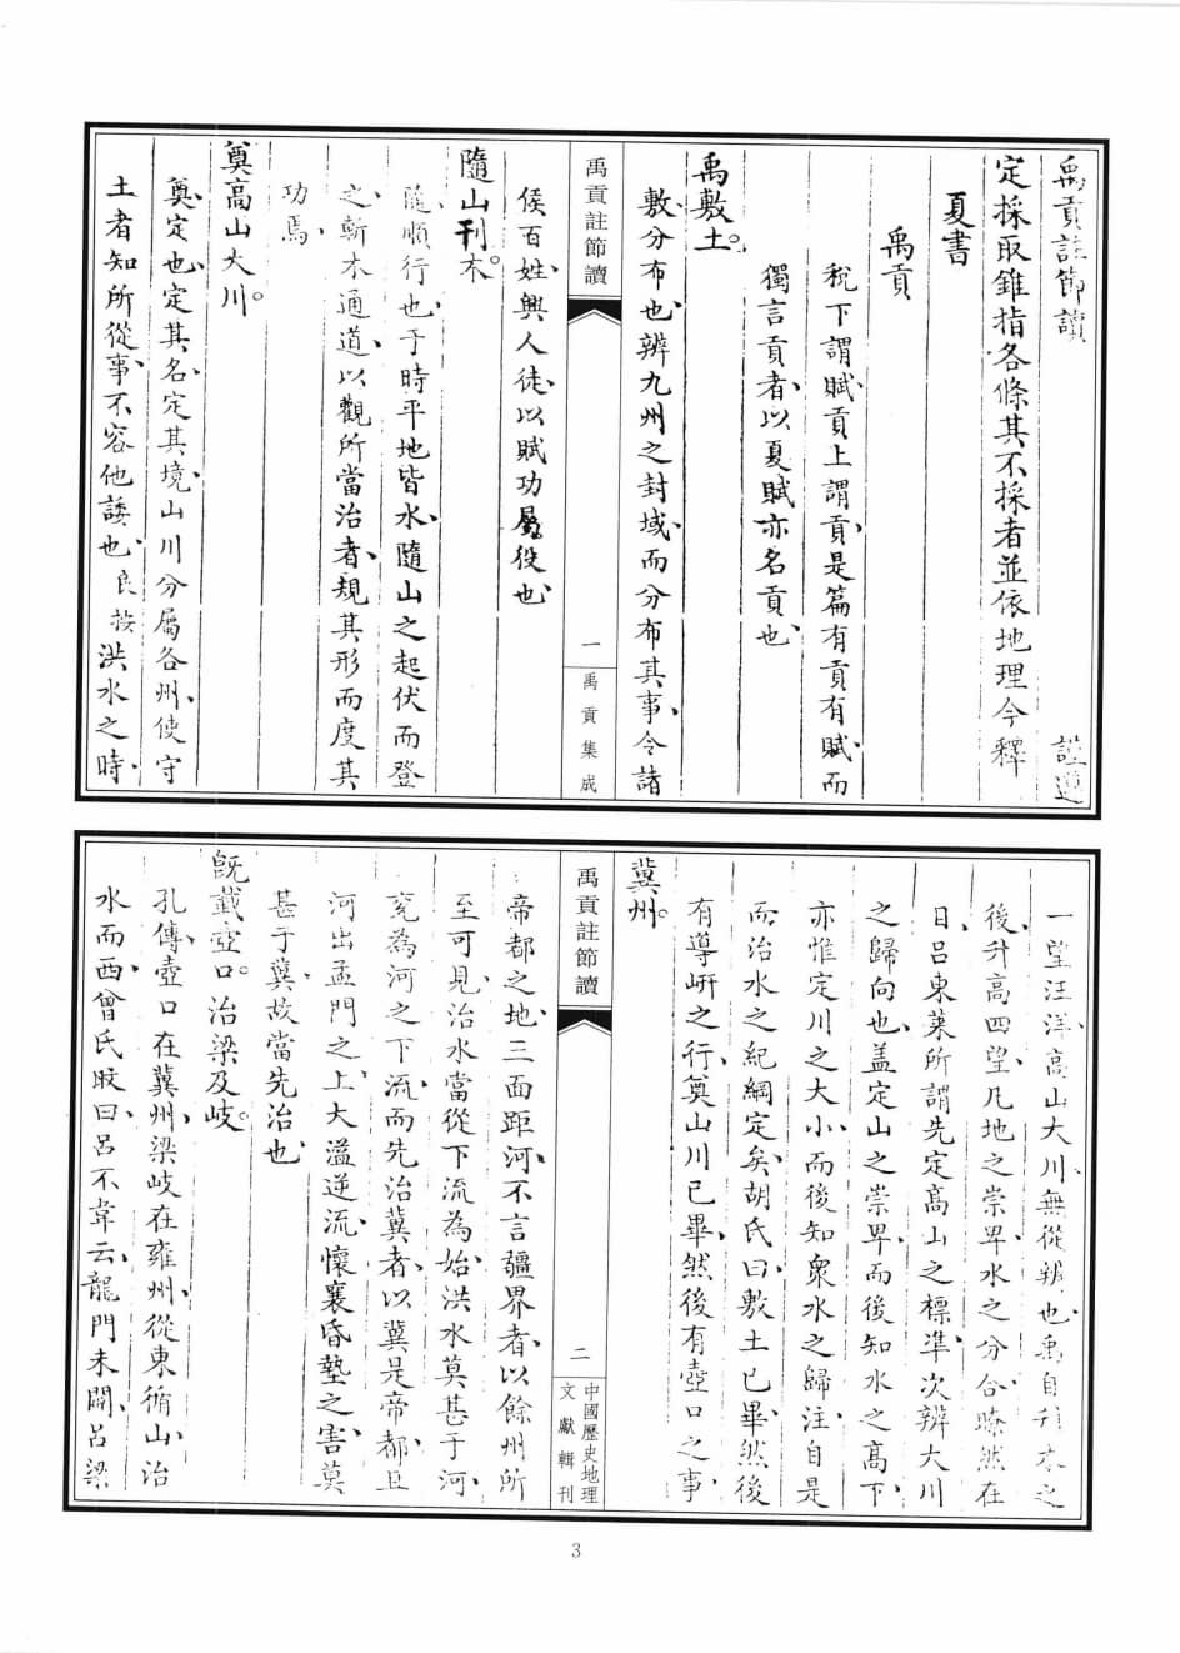 禹貢註節讀
謹遵
定採取錐指各條其不採者並依地理今釋
夏書
禹貢
稅下謂賦貢上謂貢是篇有貢有賦而
獨言貢者以夏賦亦名貢也
禹敷土。
敷分布也辨九州之封域而分布其事令諸
禹貢註節讀
一
禹貢集成
侯百姓興人徒以賦功屬役也
隨山刊木。
隨順行也于時平地皆水隨山之起伏而登
之斬木通道以觀所當治者規其形而度其
功焉
奠高山大川。
奠定也定其名定其境山川分屬各州使守
土者知所從事不容他諉也良按洪水之時
一望汪洋高山大川無從辨也禹自刊木之
後升高四望凡地之崇卑水之分合瞭然在
目呂東萊所謂先定高山之標準次辨大川
之歸向也盖定山之崇卑而後知水之高下
亦惟定川之大小而後知衆水之歸注自是
而治水之紀綱定矣胡氏曰敷土已畢然後
有導岍之行奠山川已畢然後有壺口之事
冀州。
禹貢註節讀
二
中國歷史地理
文獻輯刊
帝都之地三面距河不言疆界者以餘州所
至可見治水當從下流為始洪水莫甚于河
兖為河之下流而先治冀者以冀是帝都且
河出孟門之上大溢逆流懷襄昏墊之害莫
甚于冀故當先治也
旣載壺口。治梁及岐。
孔傳壺口在冀州梁岐在雍州從東循山治
水而西曾氏旼曰呂不韋云龍門未闢呂梁
3